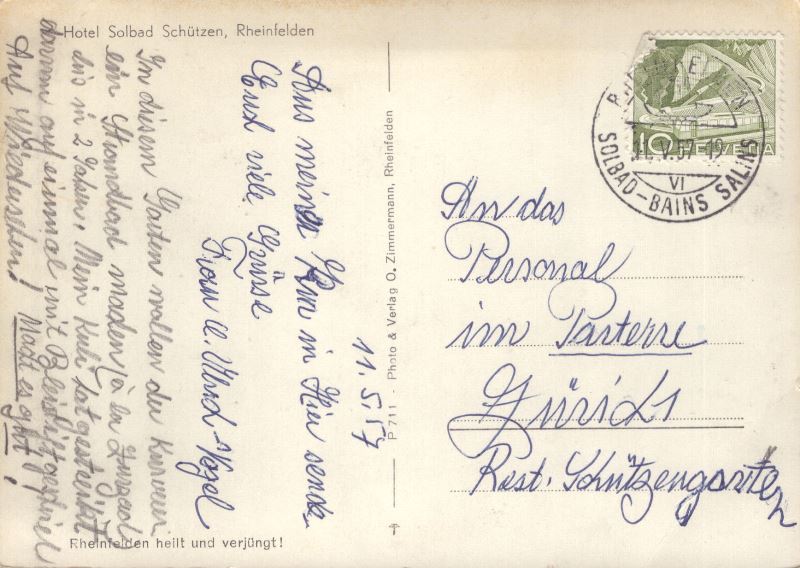 Hotel Solbad Schützen, Rheinfelden
HELVETIA
10
RHEINFELDEN
11. V. 57-19
VI
SOLBAD-BAINS SALINS
11.5.57
Aus meiner Kur in Hier sende
Euch viele Grüsse
Frau
Vogel
In diesem Garten wollen der Kurverein
ein Strandbad machen
bis in 2 Jahren. Mein Kuli hat gestreikt
darum auf einmal mit Bleistift
Auf Wiedersehen! Macht es gut!
Rheinfelden heilt und verjüngt!
P 711 - Photo & Verlag O. Zimmermann, Rheinfelden
An das
Personal
im Parterre
Zürich
Rest. Schützengarten